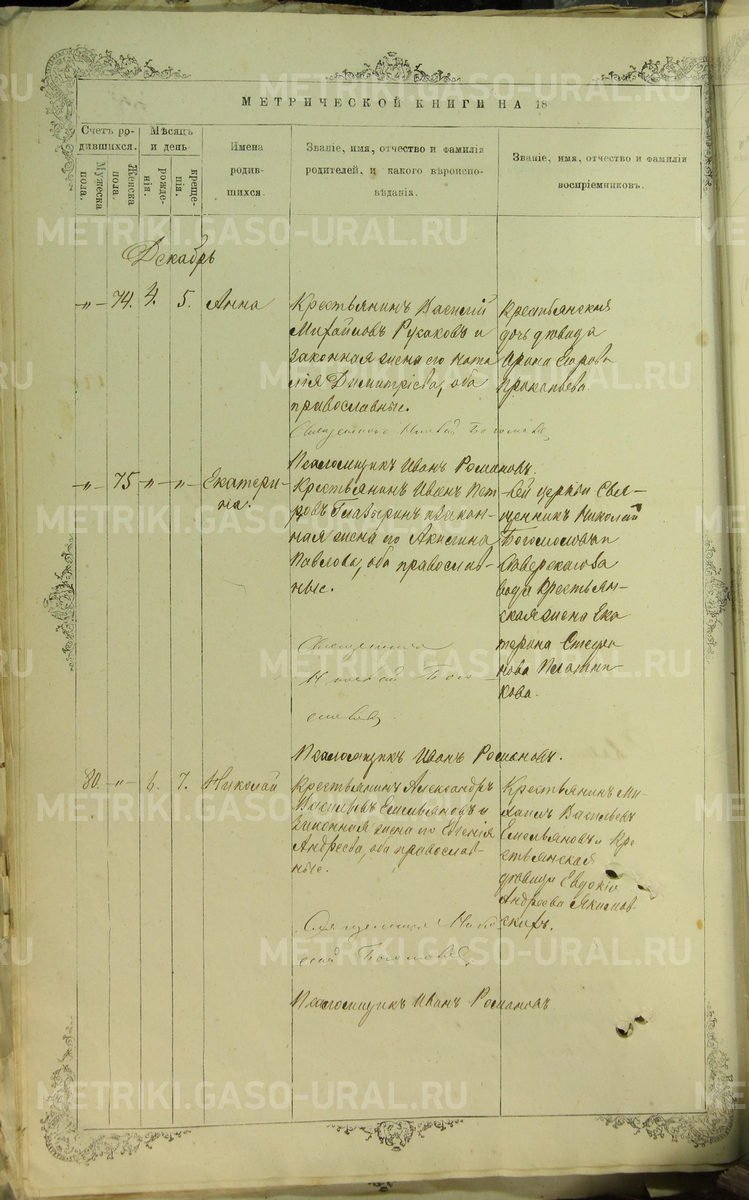 МЕТРИЧЕСКОЙ КНИГИ НА 18
Счетъ ро-
дившихся.
Мужеска
пола.
Женска
пола.
Мѣсяцъ
и день
рожде-
нія.
креще-
нія.
Имена
родив-
шихся.
Званіе, имя, отчество и фамилія
родителей, и какого вѣроиспо-
вѣданія.
Званіе, имя, отчество и фамилія
воспріемниковъ.
Декабрь
-„- 74. 4. 5. Анна
Крестьянинъ Василій
Михайловъ Русаковъ и
законная жена его Ната
лія Димитріева, оба
православные.
Священникъ Николай Богословъ
Псаломщикъ Иванъ Романовъ.
Крестьянская
дочь дѣвица
Ирина Егорова
Прокопьева
-„- 75 -„- -„- Екатери-
на.
Крестьянинъ Иванъ Пет
ровъ Глазыринъ и закон-
ная жена его Акилина
Павлова, оба православ-
ные.
Священникъ
Николай Бого-
словъ
Псаломщикъ Иванъ Романовъ.
-вей церкви Свя-
щенникъ Николай
Богословъ и
завода Крестьян-
ская жена Ека
терина Стефа
нова Плотни-
кова.
80. -„- 6. 7. Николай
Крестьянинъ Александръ
Васильевъ Емельяновъ и
законная жена его Евгенія
Андреева, оба православ-
ные.
Священникъ Нико
лай Богословъ
Псаломщикъ Иванъ Романовъ
Крестьянинъ Ми-
хаилъ Васильевъ
Емельяновъ и Кре
стьянская
дѣвица Евдокія
Андреева
METRIKI.GASO-URAL.RU